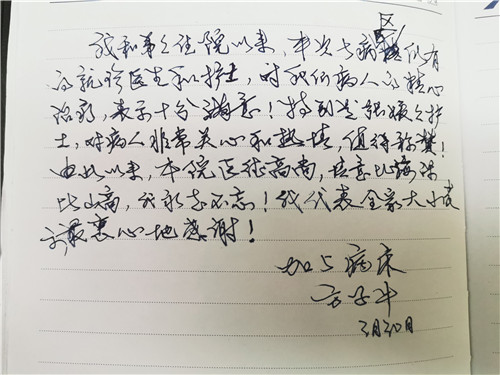 我和弟久住院以来，本次七病区所有
的就珍医生和护士，对我们病人的精心
治疗，表示十分满意！特别是护
士，对病人非常关心和热情，值得称赞！
由此以来，本院医德高尚，情意比海深
比山高，我永远不忘！我代表全家大小表
示最衷心地感谢！
加5病床
3月30日